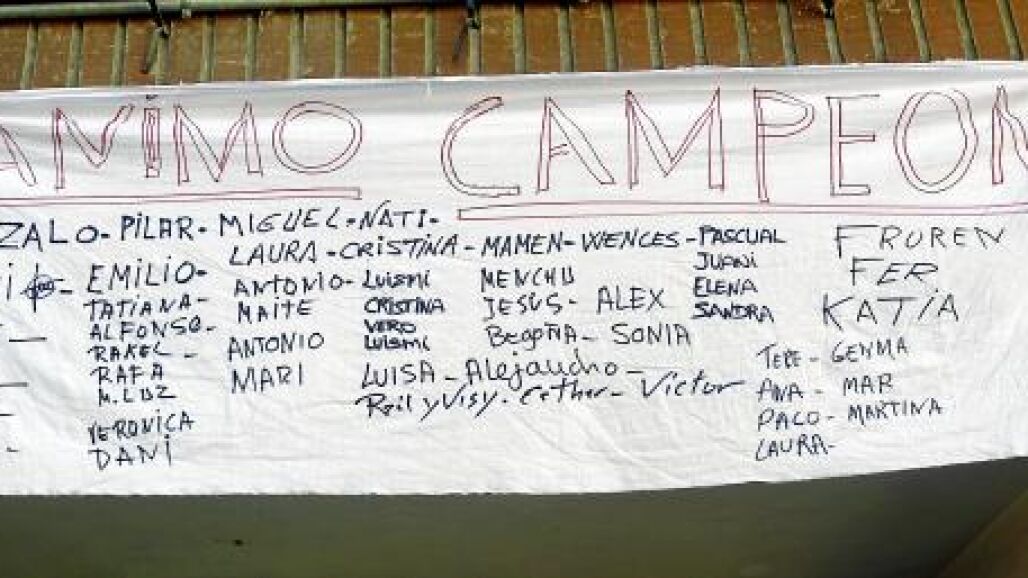 ANiMO CAMPEON
ZALO - PILAR - MIGUEL - NATI -
LAURA - CRISTINA - MAMEN - WENCES - PASCUAL
EMILIO -
TATIANA -
ALFONSO -
RAKEL -
RAFA
M. LUZ
VERONICA
DANi
ANTONIO -
MAITE
ANTONIO
MARI
Luismi
CRISTINA
VERO
Luismi
MENCHU
JESUS - ALEX
BEGOÑA - SONIA
LUISA - Alejandro -
y Visy. - Victor
JUANi
ELENA
SANDRA
FRUREN
FER
KATiA
TERE - GENMA
ANA - MAR
PACO - MARTINA
LAURA -